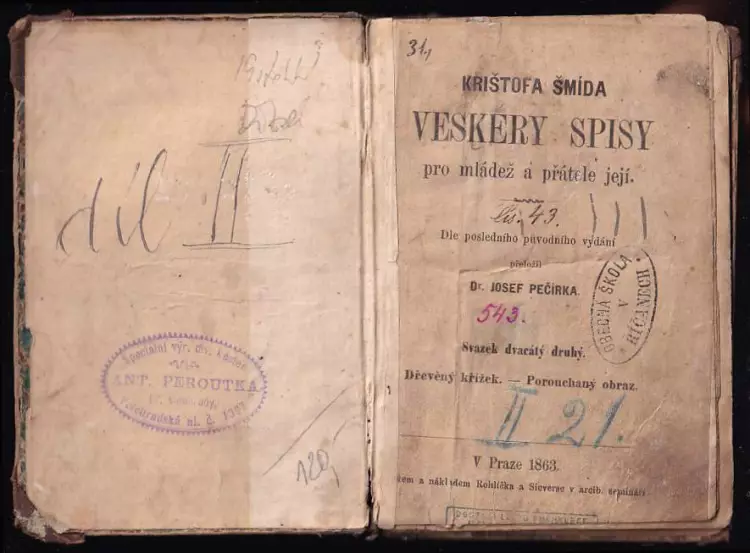 díl II
Speciální výr. div.
ANT. PEROUTKA
ul. č.
120,
31,
KRIŠTOFA ŠMÍDA
VESKERY SPISY
pro mládež a přátele její.
čís. 43.
III
Dle posledního původního vydání
přeložil
Dr. JOSEF PEČÍRKA.
543.
OBECNÁ ŠKOLA
V
ŘÍČANECH
Svazek dvacátý druhý.
Dřevěný křížek. — Porouchaný obraz.
II 21.
V Praze 1863.
kem a nákladem Rohlíčka a Sieverse v arcib. semináři